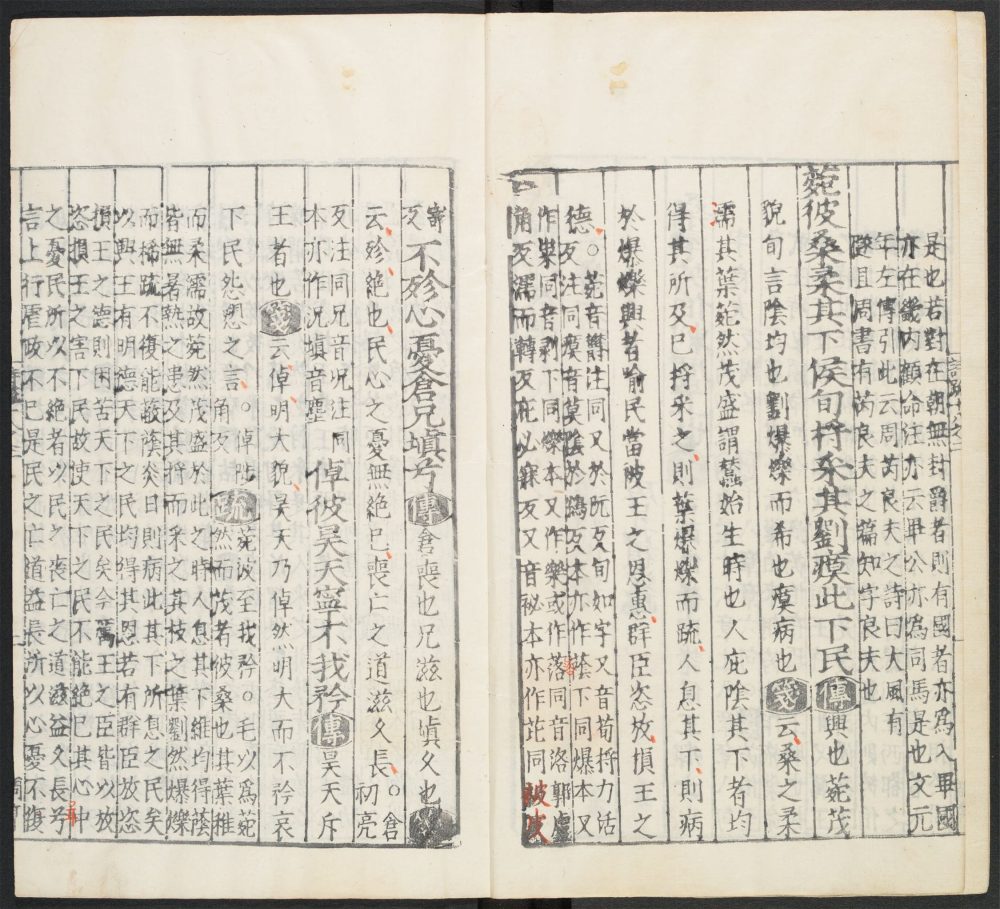 是也若對在朝無封爵者則有國者亦為入畢國
亦在畿內顧命注亦云畢公亦為同馬是也文元
年左傳引此云周芮良夫之詩曰大風有
隧且周書有芮良夫之篇知字良夫也
菀彼桑柔其下侯旬捋采其劉瘼此下民傳興也菀茂
貌旬言陰均也劉爆爍而希也瘼病也箋云桑之柔
濡其葉菀然茂盛謂蠶始生時也人庇陰其下者均
得其所及已捋采之則葉爆爍而疏人息其下則病
於爆爍興者喻民當被王之恩惠群臣恣放損王之
德○菀音鬱注同又於阮反旬如字又音荀捋力活
反注同瘼音莫陰於鴆反本亦作蔭下同爆本又
作㬥同音剥下同爍本又作樂或作落同音洛郭盧
角反濡而轉反庇必寐反又音祕本亦作芘同 被皮
寄
反 不殄心憂倉兄塡兮傳倉喪也兄滋也塡久也箋
云殄絕也民心之憂無絕已喪亡之道滋久長○倉初亮
反注同兄音況注同
本亦作況塡音塵 倬彼昊天寧不我矜傳昊天斥
王者也箋云倬明大貌昊天乃倬然明大而不矜哀
下民怨愬之言○倬陟角反疏菀彼至我矜○毛以為菀
然而茂者彼桑也其葉稚
而柔濡故菀然茂盛於此之時人息其下維均得蔭
皆無暑熱之患及其捋而采之其枝之葉劉然爆爍
而稀疏不復能蔽蔭炎日則病此其下所息之民矣
以興王有明德天下之民均得其恩若有群臣放恣
損王之德則困苦天下之民矣今王之臣皆以放
恣損王之害下民故使天下之民不能絕已其心中
之憂民所以不絕者以民之喪亡之道滋益久長兮
言上行虐政不已是民之亡道益長所以心憂不復